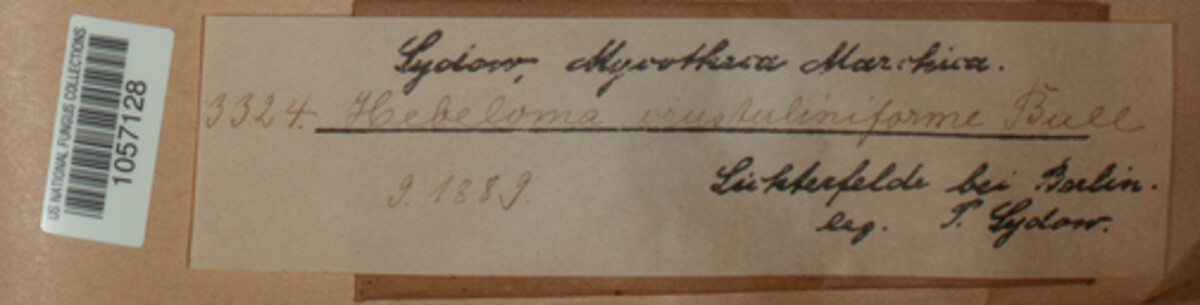 US NATIONAL FUNGUS COLLECTIONS
1057128
Sydow, Mycotheca Marchica.
3324. Hebeloma crustuliniforme Bull
9. 1889.
Lichterfelde bei Berlin.
leg. P. Sydow.